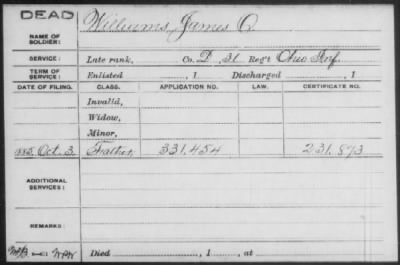 DEAD
NAME OF SOLDIER: Williams, James C.
SERVICE: Late rank, Co. D, 31 Reg't Ohio Inf.
TERM OF SERVICE: Enlisted , 1 Discharged , 1
DATE OF FILING. CLASS. APPLICATION NO. LAW. CERTIFICATE NO.
Invalid,
Widow,
Minor,
1885, Oct. 3. Father, 331,454 231,873
ADDITIONAL SERVICES:
REMARKS:
Died , 1 , at